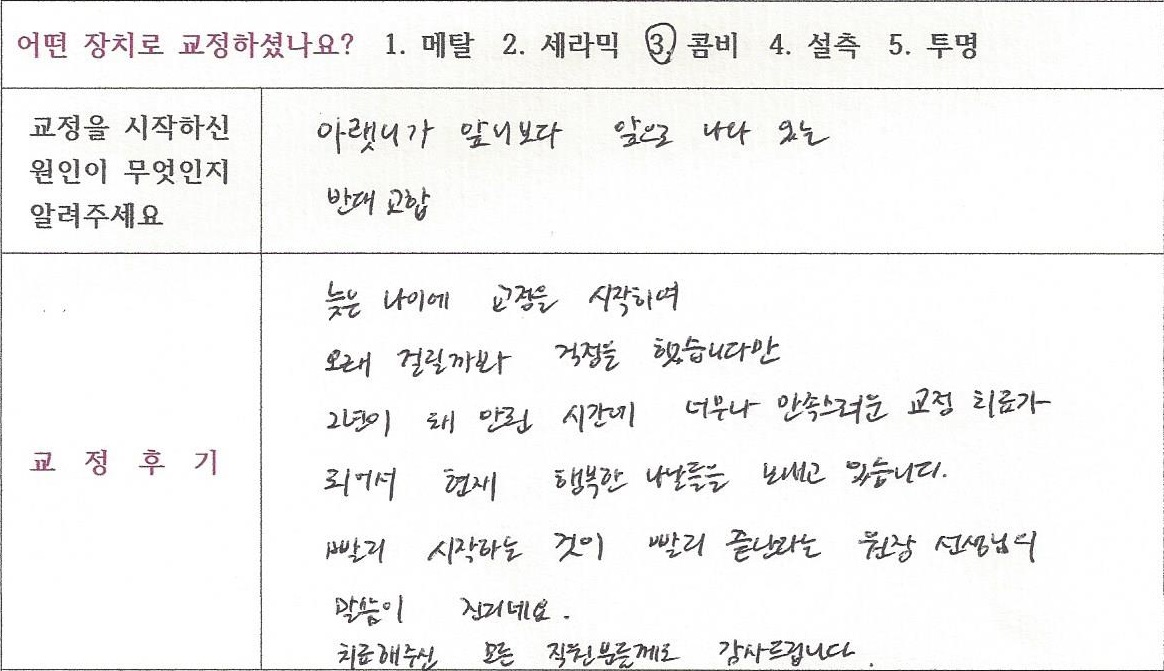 어떤 장치로 교정하셨나요? 1. 메탈 2. 세라믹 3. 콤비 4. 설측 5. 투명
교정을 시작하신
원인이 무엇인지
알려주세요
아랫니가 앞니보다 앞으로 나와 있는
반대 교합
교 정 후 기
늦은 나이에 교정을 시작하여
오래 걸릴까봐 걱정을 했습니다만
2년이 채 안된 시간에 너무나 만족스러운 교정 치료가
되어서 현재 행복한 나날들을 보내고 있습니다.
빨리 시작하는 것이 빨리 끝난다는 원장 선생님의
말씀이 진리네요.
치료해주신 모든 직원분들께도 감사드립니다.